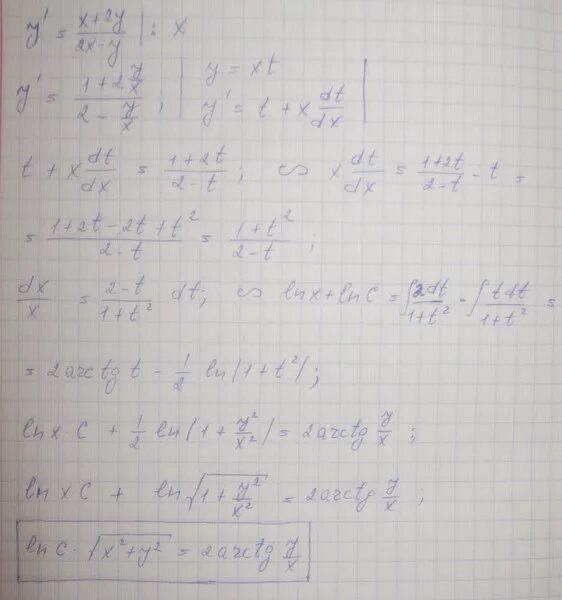 y' = (x+2y)/(2x-y) | : x
y' = (1+2 y/x)/(2 - y/x) ; | y = xt | y' = t + x dt/dx |
t + x dt/dx = (1+2t)/(2-t) ; ⇔ x dt/dx = (1+2t)/(2-t) - t =
= (1+2t-2t+t²)/(2-t) = (1+t²)/(2-t) ;
dx/x = (2-t)/(1+t²) dt; ⇔ ln x + ln C = ∫ 2dt/(1+t²) - ∫ tdt/(1+t²) =
= 2arctg t - 1/2 ln(1+t²);
ln x·C + 1/2 ln(1 + y²/x²) = 2arctg y/x ;
ln xC + ln √(1 + y²/x²) = 2arctg y/x ;
ln C·√(x²+y²) = 2arctg y/x